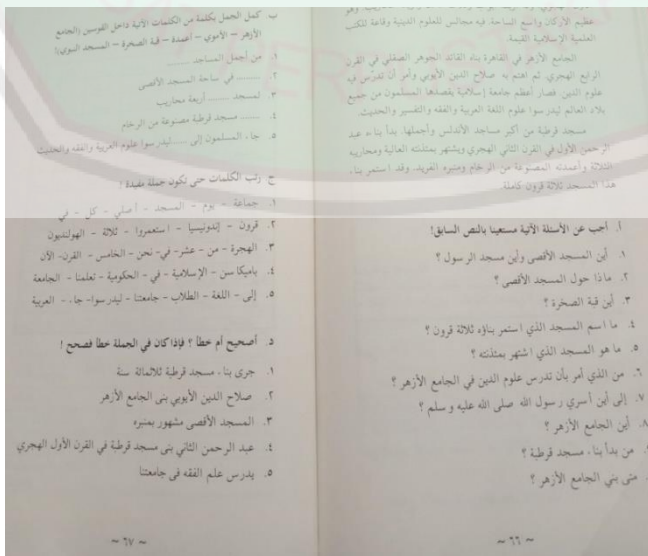 عظيم الأركان واسع الساحة. فيه مجالس للعلوم الدينية وقاعة للكتب
العلمية الإسلامية القيمة.
الجامع الأزهر في القاهرة بناه القائد الجوهر الصقلي في القرن
الرابع الهجري. ثم اهتم به صلاح الدين الأيوبي وأمر أن تدرس فيه
علوم الدين. فصار أعظم جامعة إسلامية يقصدها المسلمون من جميع
بلاد العالم ليدرسوا علوم اللغة العربية والفقه والتفسير والحديث.
مسجد قرطبة من أكبر مساجد الأندلس وأجملها. بدأ بناءه عبد
الرحمن الأول في القرن الثاني الهجري ويشتهر بمئذنته العالية ومحاريبه
الثلاثة وأعمدته المصنوعة من الرخام ومنبره الفريد. وقد استمر بناء
هذا المسجد ثلاثة قرون كاملة.
أ. أجب عن الأسئلة الآتية مستعينا بالنص السابق!
١. أين المسجد الأقصى وأين مسجد الرسول ؟
٢. ماذا حول المسجد الأقصى ؟
٣. أين قبة الصخرة ؟
٤. ما اسم المسجد الذي استمر بناؤه ثلاثة قرون ؟
٥. ما هو المسجد الذي اشتهر بمئذنته ؟
٦. من الذي أمر بأن تدرس علوم الدين في الجامع الأزهر ؟
٧. إلى أين أسري رسول الله صلى الله عليه وسلم ؟
٨. أين الجامع الأزهر ؟
من بدأ بناء مسجد قرطبة ؟
متى بني الجامع الأزهر ؟
~ ٦٦ ~
ب. كمل الجمل بكلمة من الكلمات الآتية داخل القوسين (الجامع
الأزهر – الأموي – أعمدة – قبة الصخرة – المسجد النبوي)!
١. من أجمل المساجد ........
٢. ........ في ساحة المسجد الأقصى
٣. لمسجد ........ أربعة محاريب
٤. ........ مسجد قرطبة مصنوعة من الرخام
٥. جاء المسلمون إلى ........ ليدرسوا علوم العربية والفقه والحديث
ج. رتب الكلمات حتى تكون جملة مفيدة !
١. جماعة – يوم – المسجد – أصلي – كل – في
٢. قرون – إندونيسيا – استعمروا – ثلاثة – الهولنديون
٣. الهجرة – من – عشر – في – نحن – الخامس – القرن – الآن
٤. باميكاسن – الإسلامية – في – الحكومية – تعلمنا – الجامعة
٥. إلى – اللغة – الطلاب – جامعتنا – ليدرسوا – جاء – العربية
د. أصحيح أم خطأ ؟ فإذا كان في الجملة خطأ فصحح !
١. جرى بناء مسجد قرطبة ثلاثمائة سنة
٢. صلاح الدين الأيوبي بنى الجامع الأزهر
٣. المسجد الأقصى مشهور بمنبره
٤. عبد الرحمن الثاني بنى مسجد قرطبة في القرن الأول الهجري
٥. يدرس علم الفقه في جامعتنا
~ ٦٧ ~